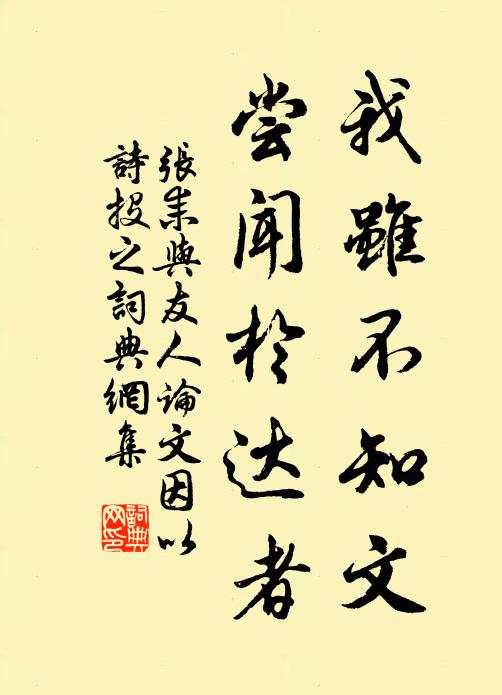 我雖不知文
尝聞於达者
張耒與友人論文因以
詩投之詞典網集
詞典
网印